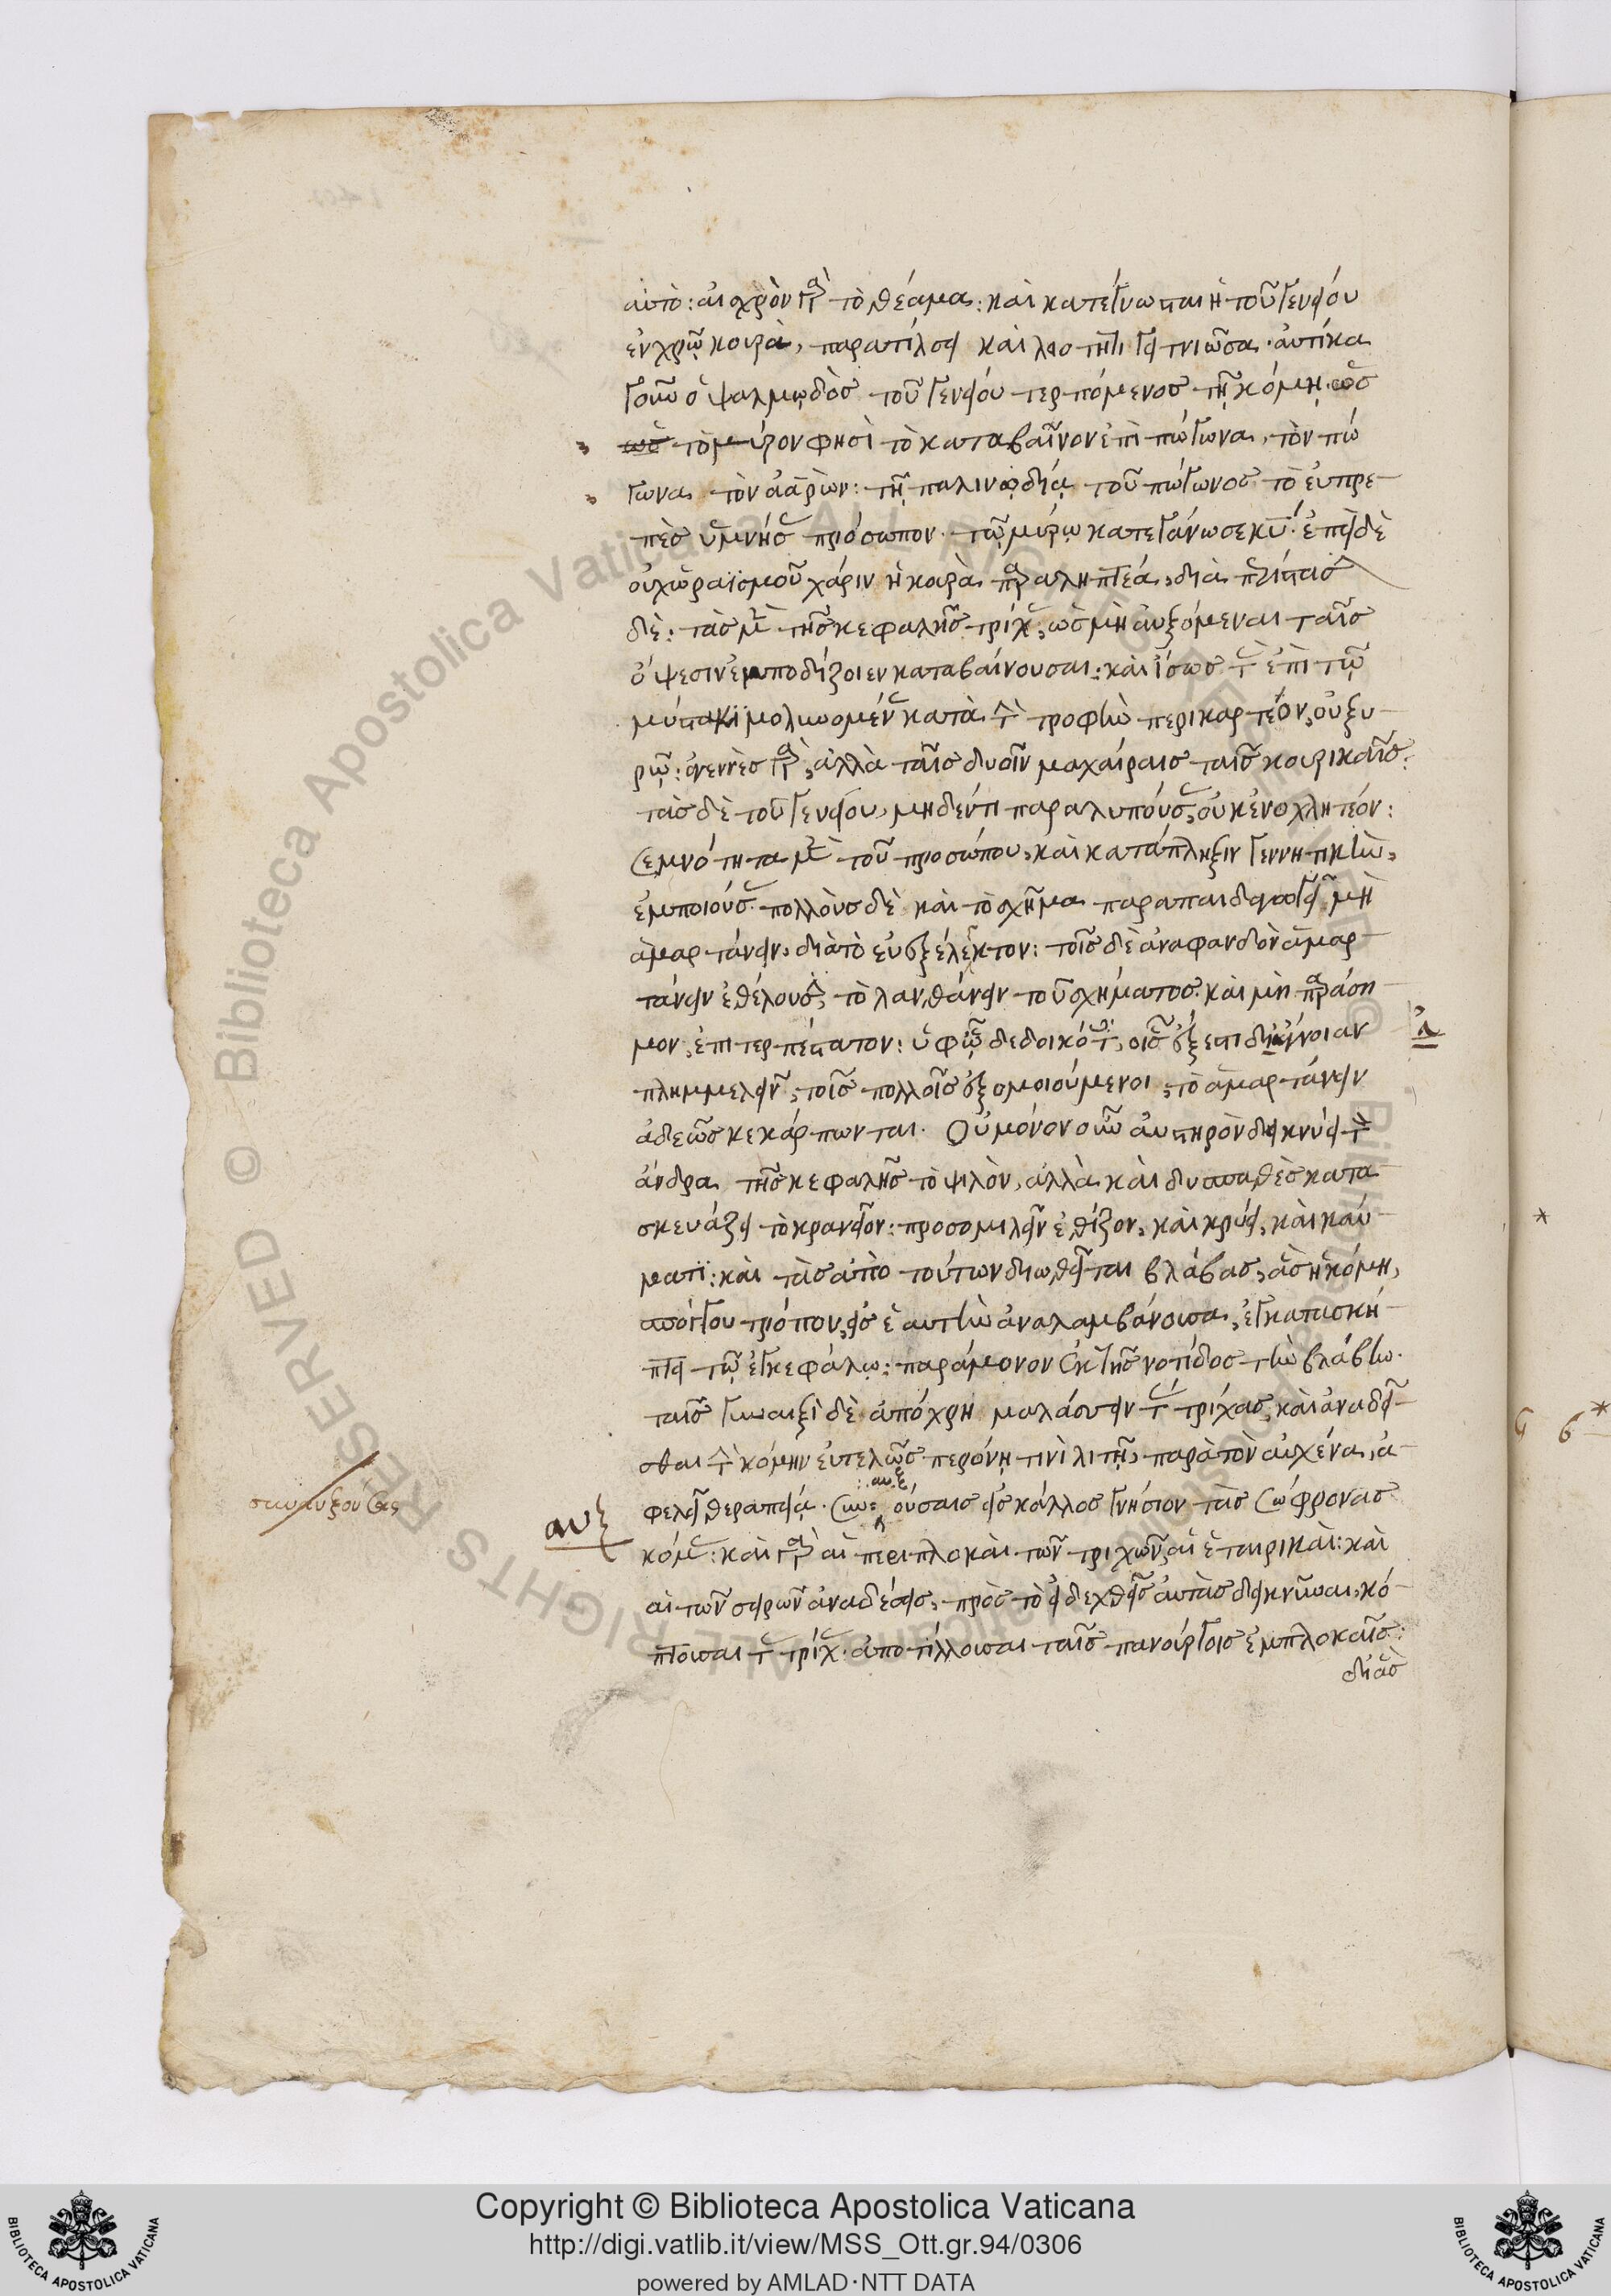 αὐτό: αἰσχρὸν γὰρ τὸ θέαμα: καὶ κατέγνωσται ἡ τοῦ γενείου
ἐν χρῷ κουρὰ, παρατίλσει καὶ λειότητι γειτνιῶσα. αὐτίκα
γοῦν ὁ ψαλμῳδὸς τοῦ γενείου τερπόμενος τῇ κόμῃ. ὡς
ὡς τὸ μύρον φησὶ τὸ καταβαῖνον ἐπὶ πώγωνα, τὸν πώ
γωνα τὸν ἀαρών: τῇ παλινῳδίᾳ τοῦ πώγωνος τὸ εὐπρε-
πὲς ὑμνήσας πρόσωπον. τῷ μύρῳ κατεγάνωσε κυ: ἐπεὶ δὲ
οὐχ ὡραϊσμοῦ χάριν ἡ κουρὰ παραληπτέα, διὰ περίστασιν
δὲ: τὰς μὲν τῆς κεφαλῆς τρίχας, ὡς μὴ αὐξόμεναι ταῖς
ὄψεσιν ἐμποδίζοιεν καταβαίνουσαι: καὶ ἴσως τὰς ἐπὶ τῷ
μύστακι μολυνομένας κατὰ τὴν τροφὴν περικαρτέον, οὐ ξυ-
ρῷ: ἀγεννὲς γὰρ, ἀλλὰ ταῖς δυοῖν μαχαίραις ταῖς κουρικαῖς:
τὰς δὲ τοῦ γενείου, μηδέν τι παραλυπούσας, οὐκ ἐνοχλητέον:
σεμνότητα μὲν τοῦ προσώπου, καὶ κατάπληξιν γεννητικὴν,
ἐμποιούσας. πολλοὺς δὲ καὶ τὸ σχῆμα παραπαιδαγωγεῖ μὴ
ἁμαρτάνειν, διὰ τὸ εὐεξέλεγκτον: τοῖς δὲ ἀναφανδὸν ἁμαρ-
τάνειν ἐθέλουσι, τὸ λανθάνειν τοῦ σχήματος καὶ μὴ παράση-
μον, ἐπιτερπέστατον: ὑφ' ᾧ δεδοικότες, οἷς ἔξεστι διάγνοιαν
πλημμελεῖν, τοῖς πολλοῖς ἐξομοιούμενοι, τὸ ἁμαρτάνειν
ἀδεῶς κεκάρπωνται. Οὐ μόνον οὖν αὐστηρὸν δεικνύει τὸν
ἄνδρα τῆς κεφαλῆς τὸ ψιλὸν, ἀλλὰ καὶ δυσπαθὲς κατα
σκευάζει τὸ κρανεῖον: προσομιλεῖν ἐθίζον, καὶ κρύει, καὶ καύ-
ματι: καὶ τὰς ἀπὸ τούτων διωθεῖται βλάβας, ἃς ἡ κόμη,
σπόγγου τρόπον, εἰς ἑαυτὴν ἀναλαμβάνουσα, ἐγκατασκή-
πτει τῷ ἐγκεφάλῳ: παράμονον ἐκ τῆς νοτίδος τὴν βλάβην.
ταῖς γυναιξὶ δὲ ἀπόχρη μαλάσσειν τὰς τρίχας, καὶ ἀναδεῖ-
σθαι τὴν κόμην εὐτελῶς περόνῃ τινὶ λιτῇ, παρὰ τὸν αὐχένα, ἀ-
αυξ
φελεῖ θεραπείᾳ. συν: ούσαις εἰς κάλλος γνήσιον τὰς σώφρονας
συναυξούσας
αυξ
κόμας: καὶ γὰρ αἱ περιπλοκαὶ τῶν τριχῶν, αἱ ἑταιρικαὶ: καὶ
αἱ τῶν σειρῶν ἀναδέσεις, πρὸς τὸ εἰδεχθεῖς αὐτὰς δεικνῦναι, κό-
πτουσαι τὰς τρίχας. ἀποτίλλουσαι ταῖς πανούργοις ἐμπλοκαῖς:
δι' ἃς
Copyright © Biblioteca Apostolica Vaticana
http://digi.vatlib.it/view/MSS_Ott.gr.94/0306
powered by AMLAD·NTT DATA